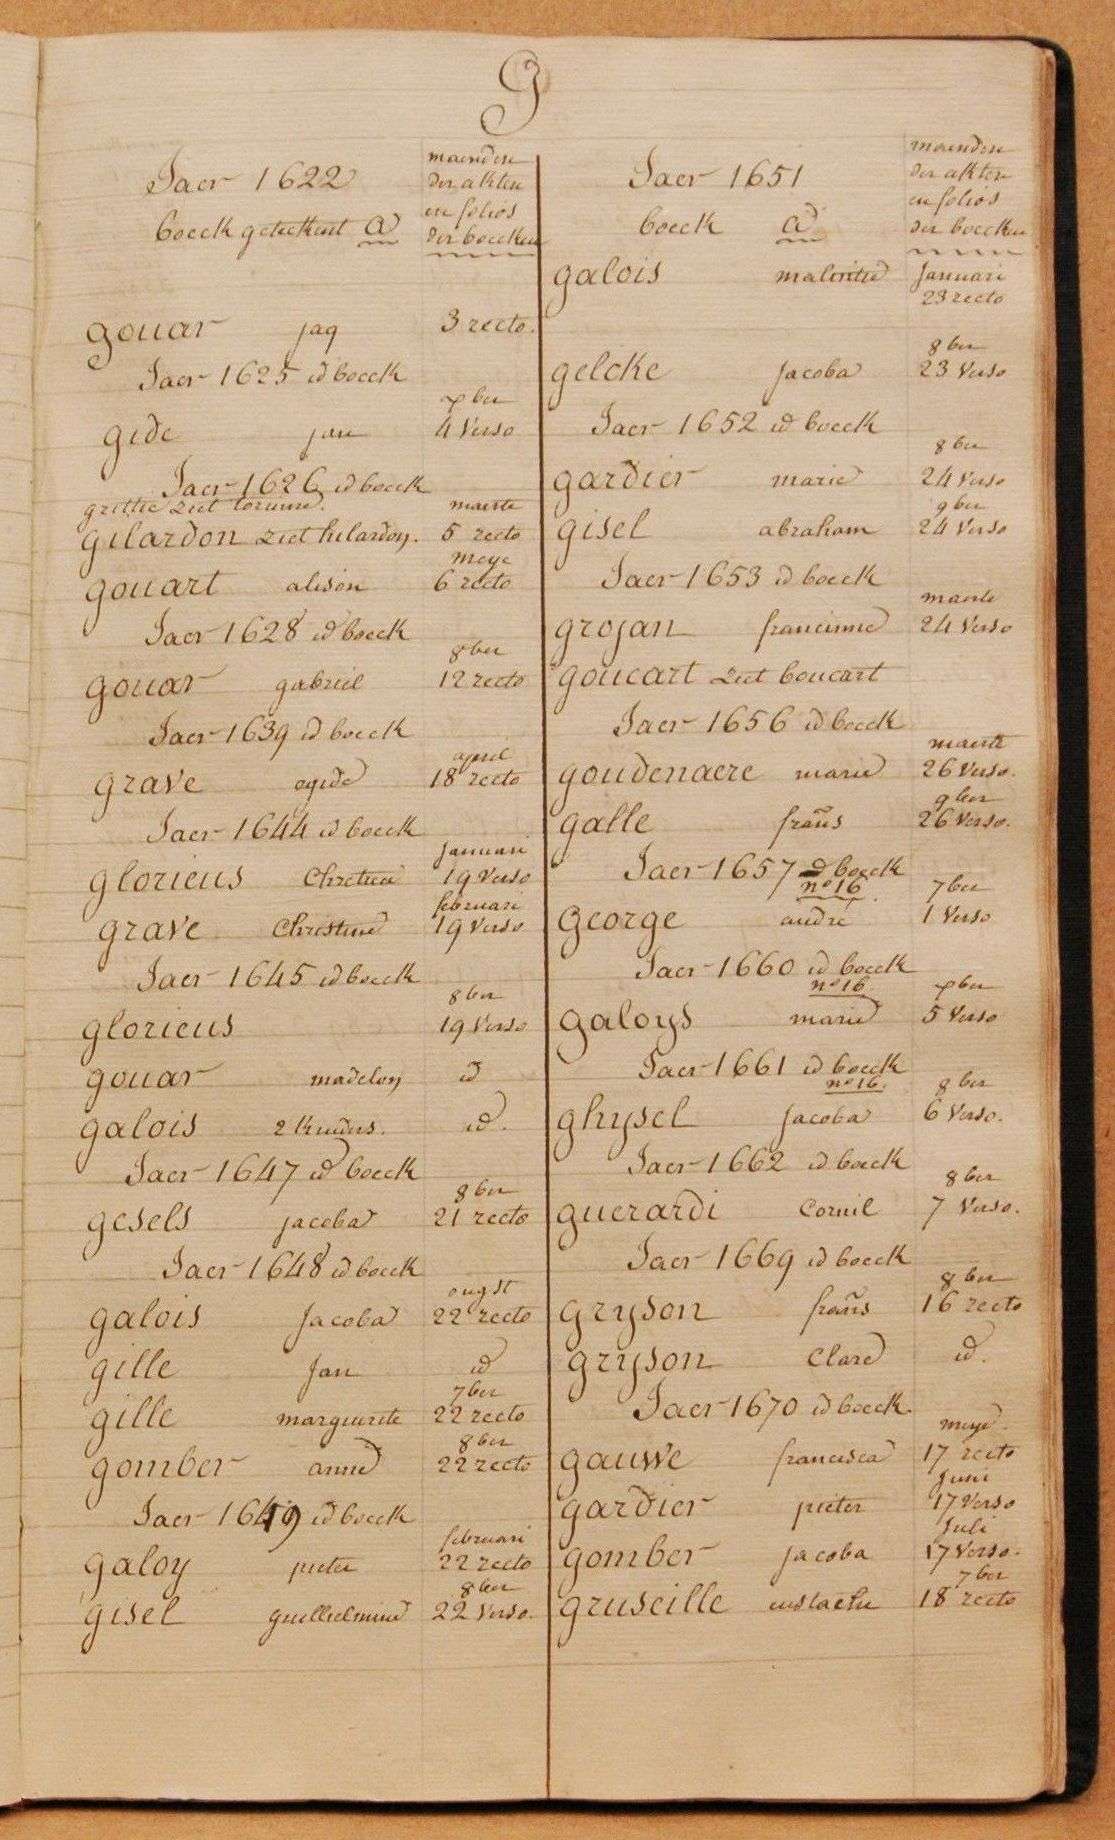 G
Jaer 1622
boeck geteekent a
maenden
der akten
en folios
der boecken
gouar jaq 3 recto.
Jaer 1625 id boeck
xber
gide jan 4 verso
Jaer 1626 id boeck
grittie ziet
maerte
gilardon ziet hilardon. 5 recto
meye
gouart alison 6 recto
Jaer 1628 id boeck
8ber
gouar gabriel 12 recto
Jaer 1639 id boeck
april
grave egide 18 recto
Jaer 1644 id boeck
januari
glorieus Chretien 19 verso
februari
grave Christine 19 verso
Jaer 1645 id boeck
8ber
glorieus 19 verso
gouar madelon id
galois 2 kinders. id.
Jaer 1647 id boeck
8ber
gesels jacoba 21 recto
Jaer 1648 id boeck
ougst
galois Jacoba 22 recto
gille Jan id
7ber
gille marguerite 22 recto
8ber
gomber anne 22 recto
Jaer 1649 id boeck
februari
galoy pieter 22 recto
8ber
gisel guillielmine 22 verso.
Jaer 1651
boeck a
maenden
der akten
en folios
der boecken
januari
galois
23 recto
8ber
gelcke jacoba 23 verso
Jaer 1652 id boeck
8ber
gardier marie 24 verso
9ber
gisel abraham 24 verso
Jaer 1653 id boeck
maerte
grojan francinne 24 verso
goucart ziet boucart
Jaer 1656 id boeck
maerte
goudenaere marie 26 verso.
9ber
galle frañs 26 verso.
Jaer 1657 id boeck
n° 16 7ber
george andré 1 verso
Jaer 1660 id boeck
n° 16 xber
galoys marie 5 verso
Jaer 1661 id boeck
n° 16. 8ber
ghysel Jacoba 6 verso.
Jaer 1662 id boeck
8ber
guerardi Cornil 7 verso.
Jaer 1669 id boeck
8ber
gryson frañs 16 recto
gryson Clare id.
Jaer 1670 id boeck.
meye.
gauwe francisca 17 recto
juni
gardier pieter 17 verso
Juli
gomber jacoba 17 verso.
7ber
gruseille eustache 18 recto